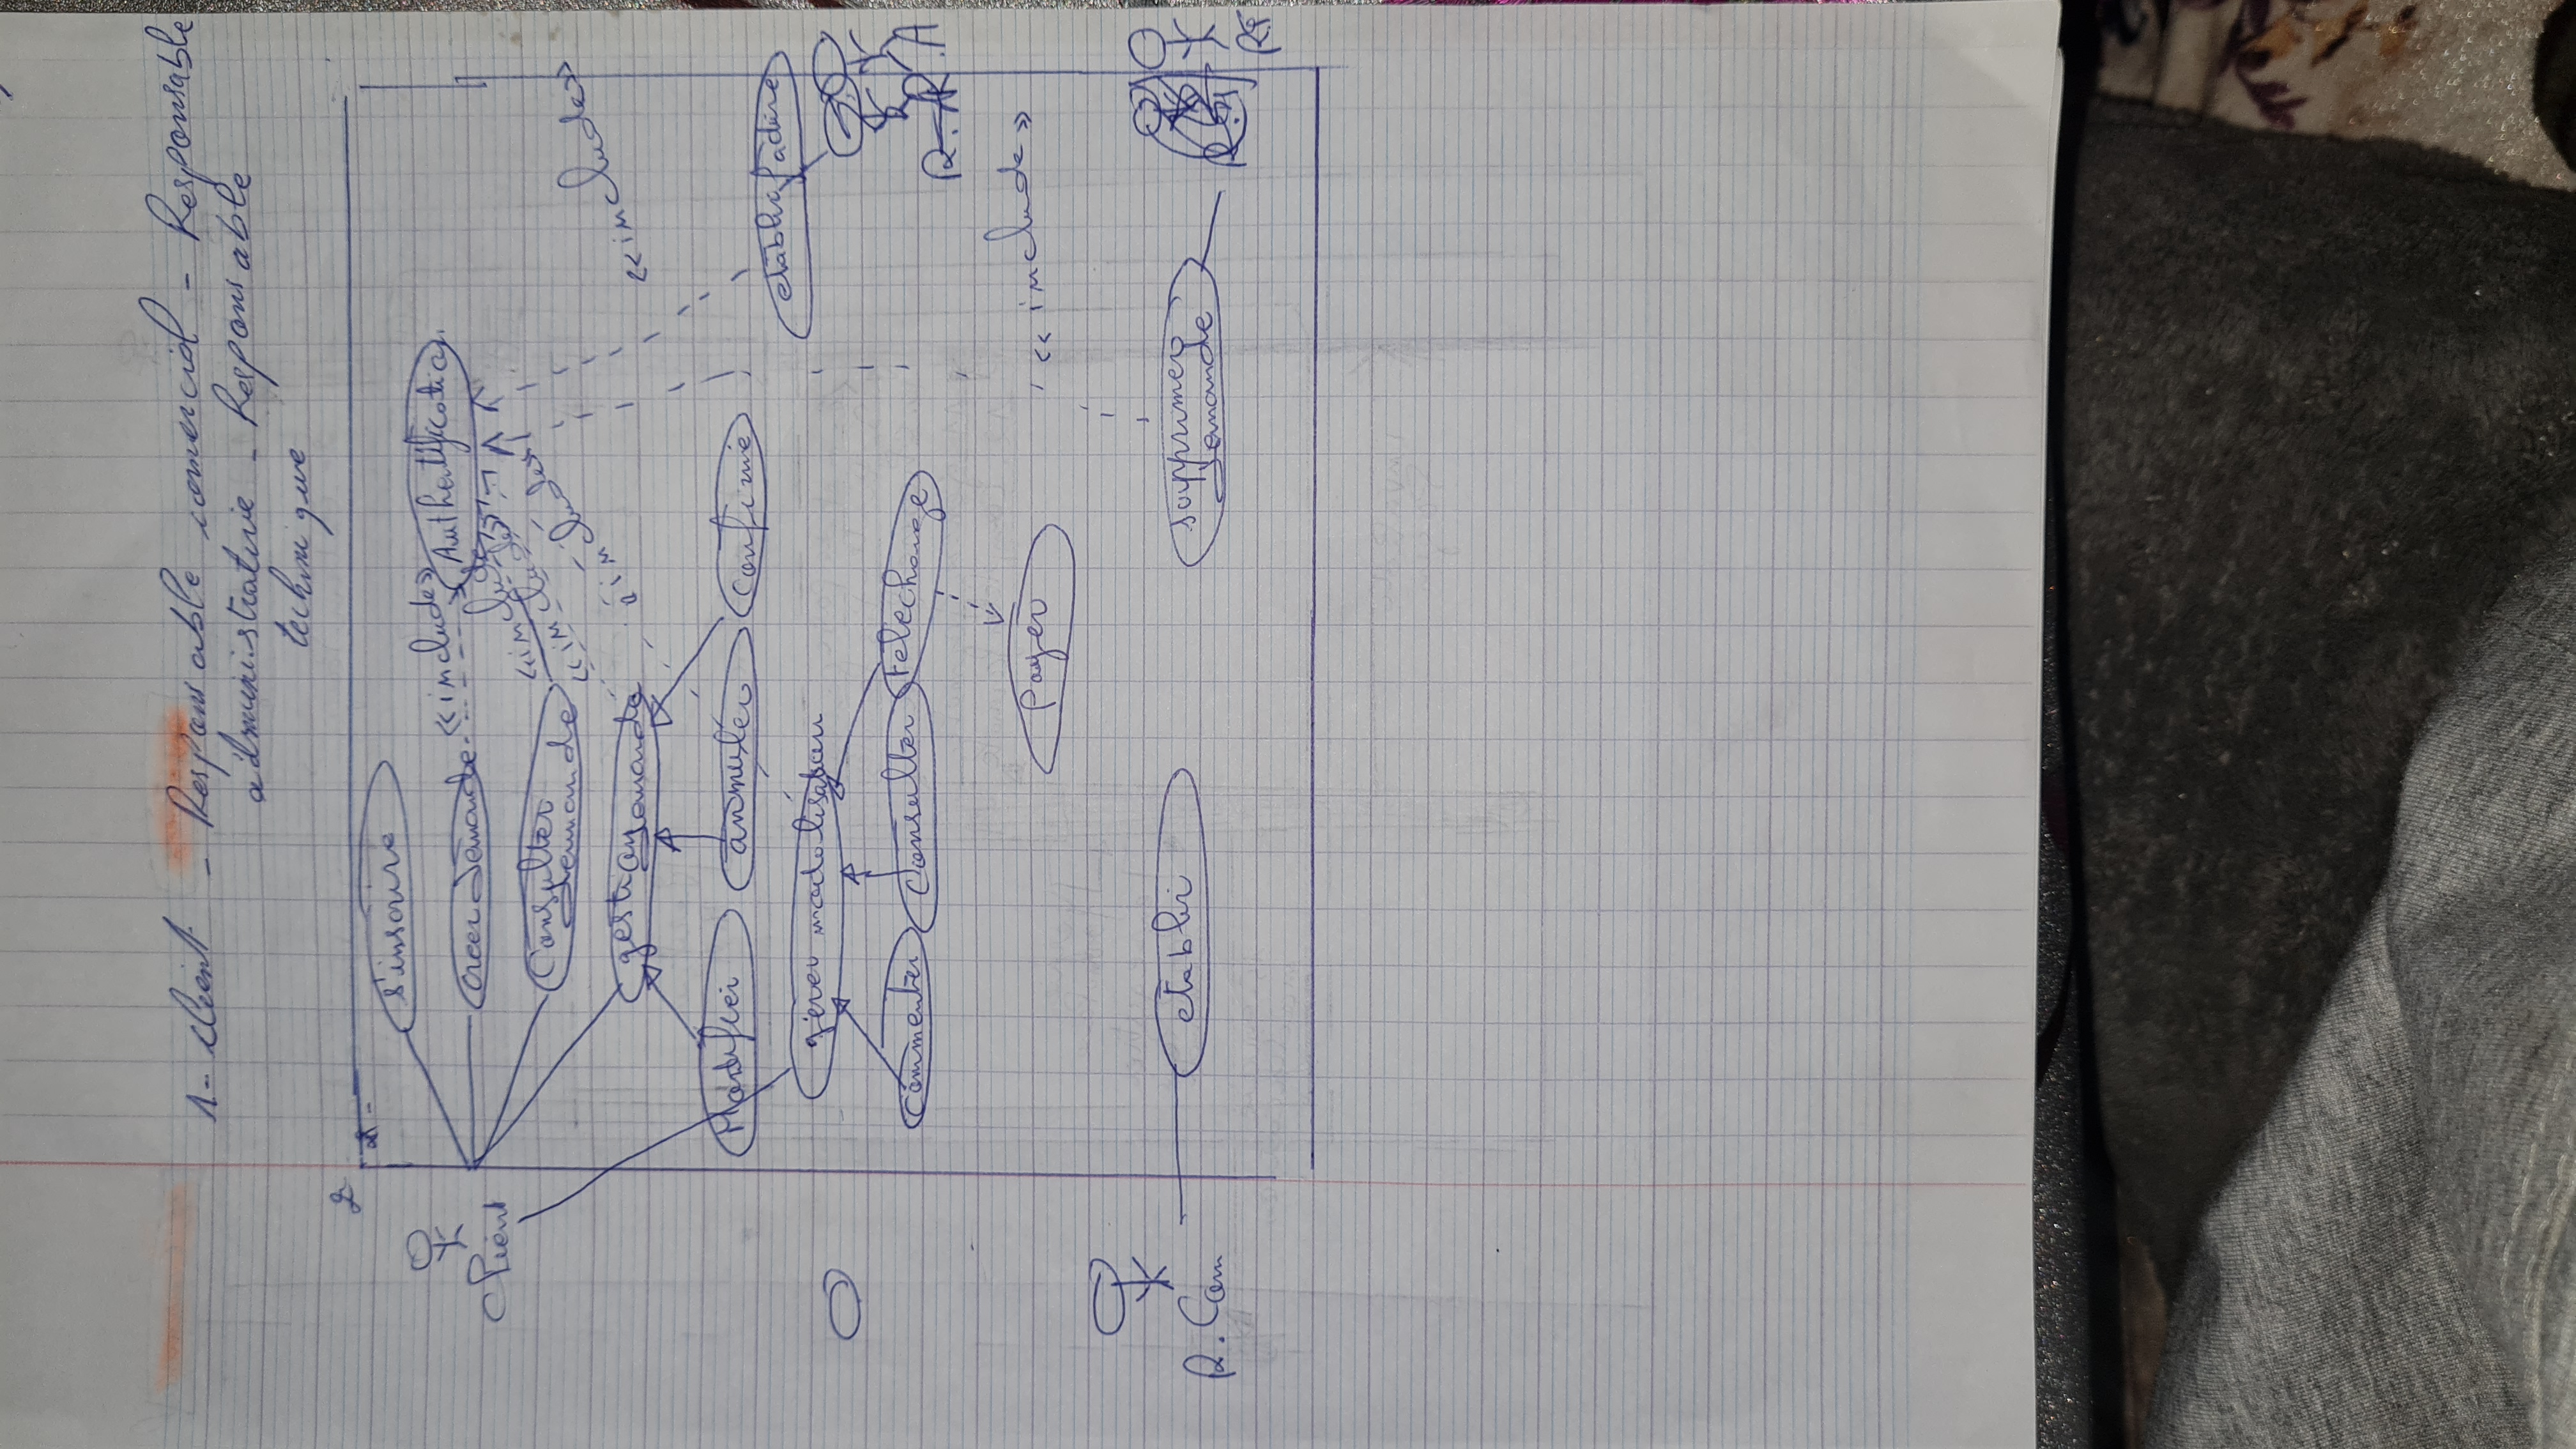 1- client - Responsable comercial - Responsable
administrative - Responsable
technique
2
s'inscrire
creer demande
<<include>>
Authentification
Consulter
demande
<<include>>
<<include>>
<<include>>
<<include>>
Client
gestion demande
Modifier
annuler
Confirmé
etablir facture
gérer
commenter
Consulter
telecharge
R.A
Payer
<<include>>
R.Com
etablir
supprimer
demande